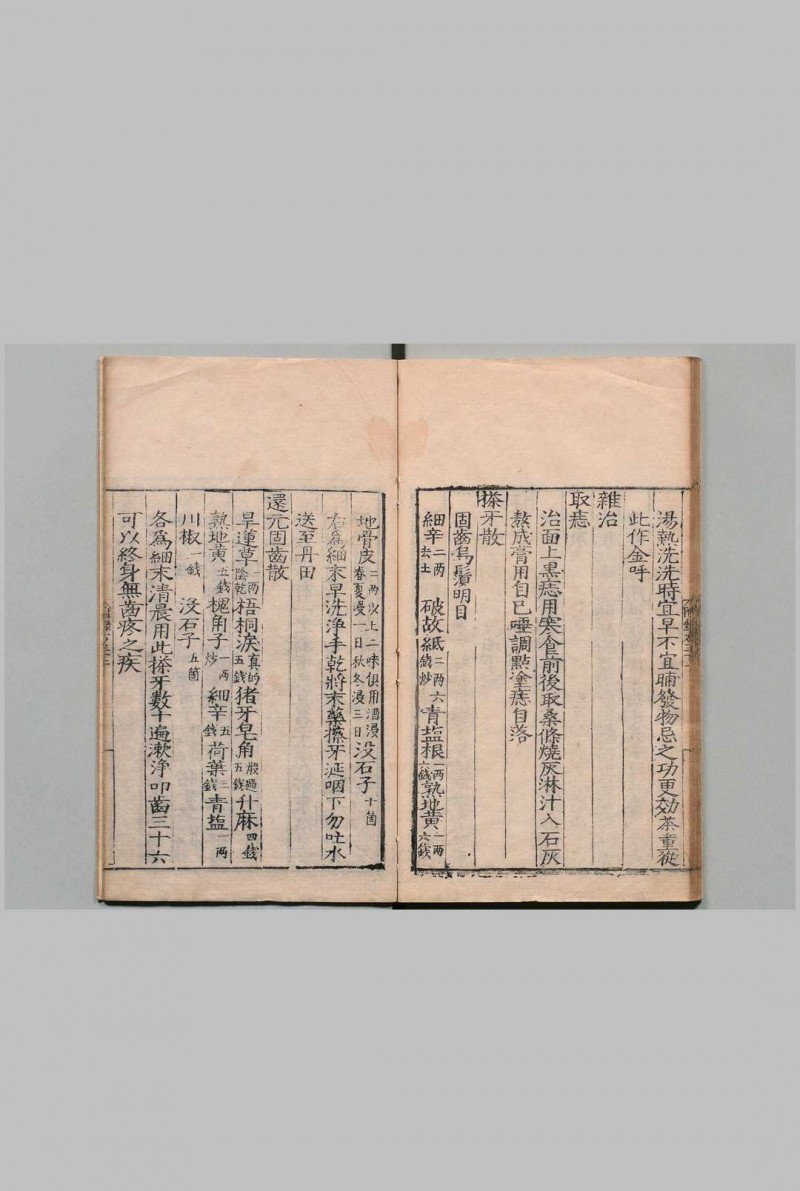 湯熱洗洗時宜早不宜晡發物忌之功更効茶重從
此作金呼
雜治
取痣
治面上黒痣用寒食前後取桑條燒灰淋汁入石灰
熬成膏用自已唾調點塗痣自落
搽牙散
固齒烏鬚明目
細辛二兩去土 破故紙二兩六錢炒 青塩根一兩六錢 熟地黄一兩六錢
地骨皮二兩以上二味俱用酒浸春夏浸一日秋冬浸三日 没石子十箇
右為細末早洗淨手乾將末藥擦牙涎咽下勿吐水
送至丹田
還元固齒散
旱蓮草一兩陰乾 梧桐淚真的五錢 猪牙皂角五錢 升麻四錢
熟地黄五錢 槐角子一兩炒 細辛五錢 荷葉三錢 青塩一兩
川椒一錢 没石子五箇
各為細末清晨用此搽牙數十遍漱淨叩齒三十六
可以終身無齒疼之疾